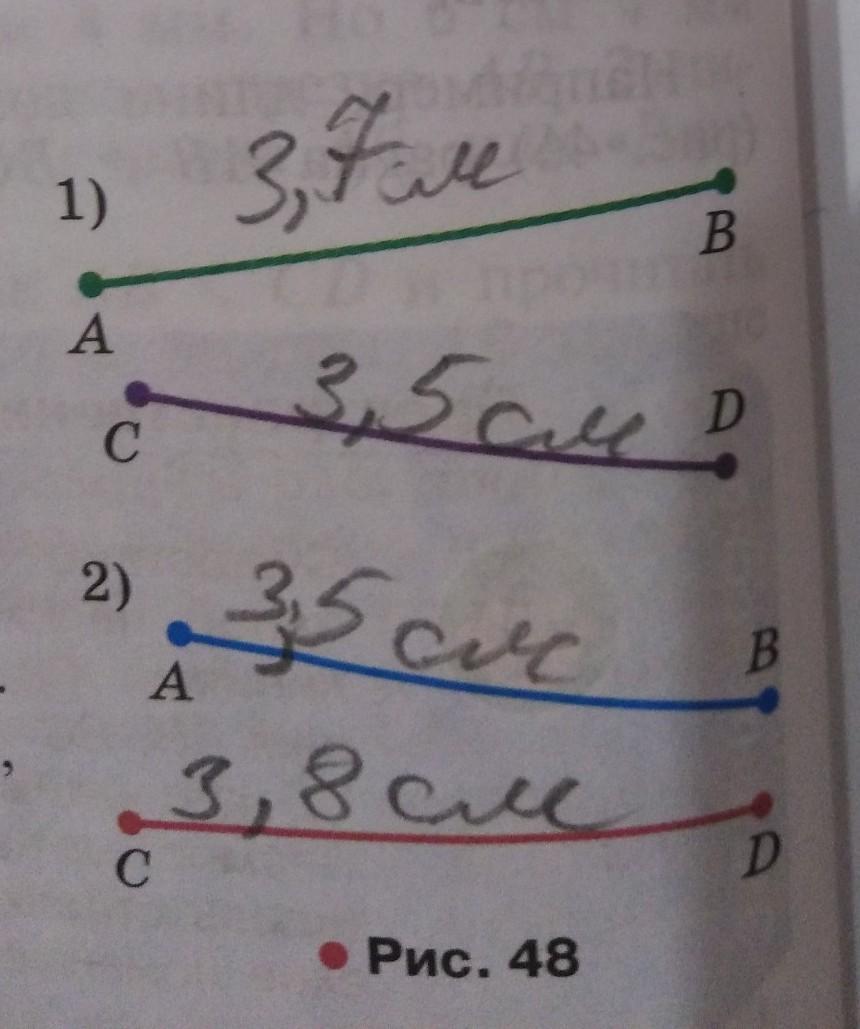 3,7 см
1)
B
A
3,5 см
D
C
2)
3,5 см
B
A
3,8 см
C
D
• Рис. 48